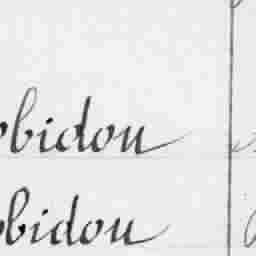 obidou
obidou